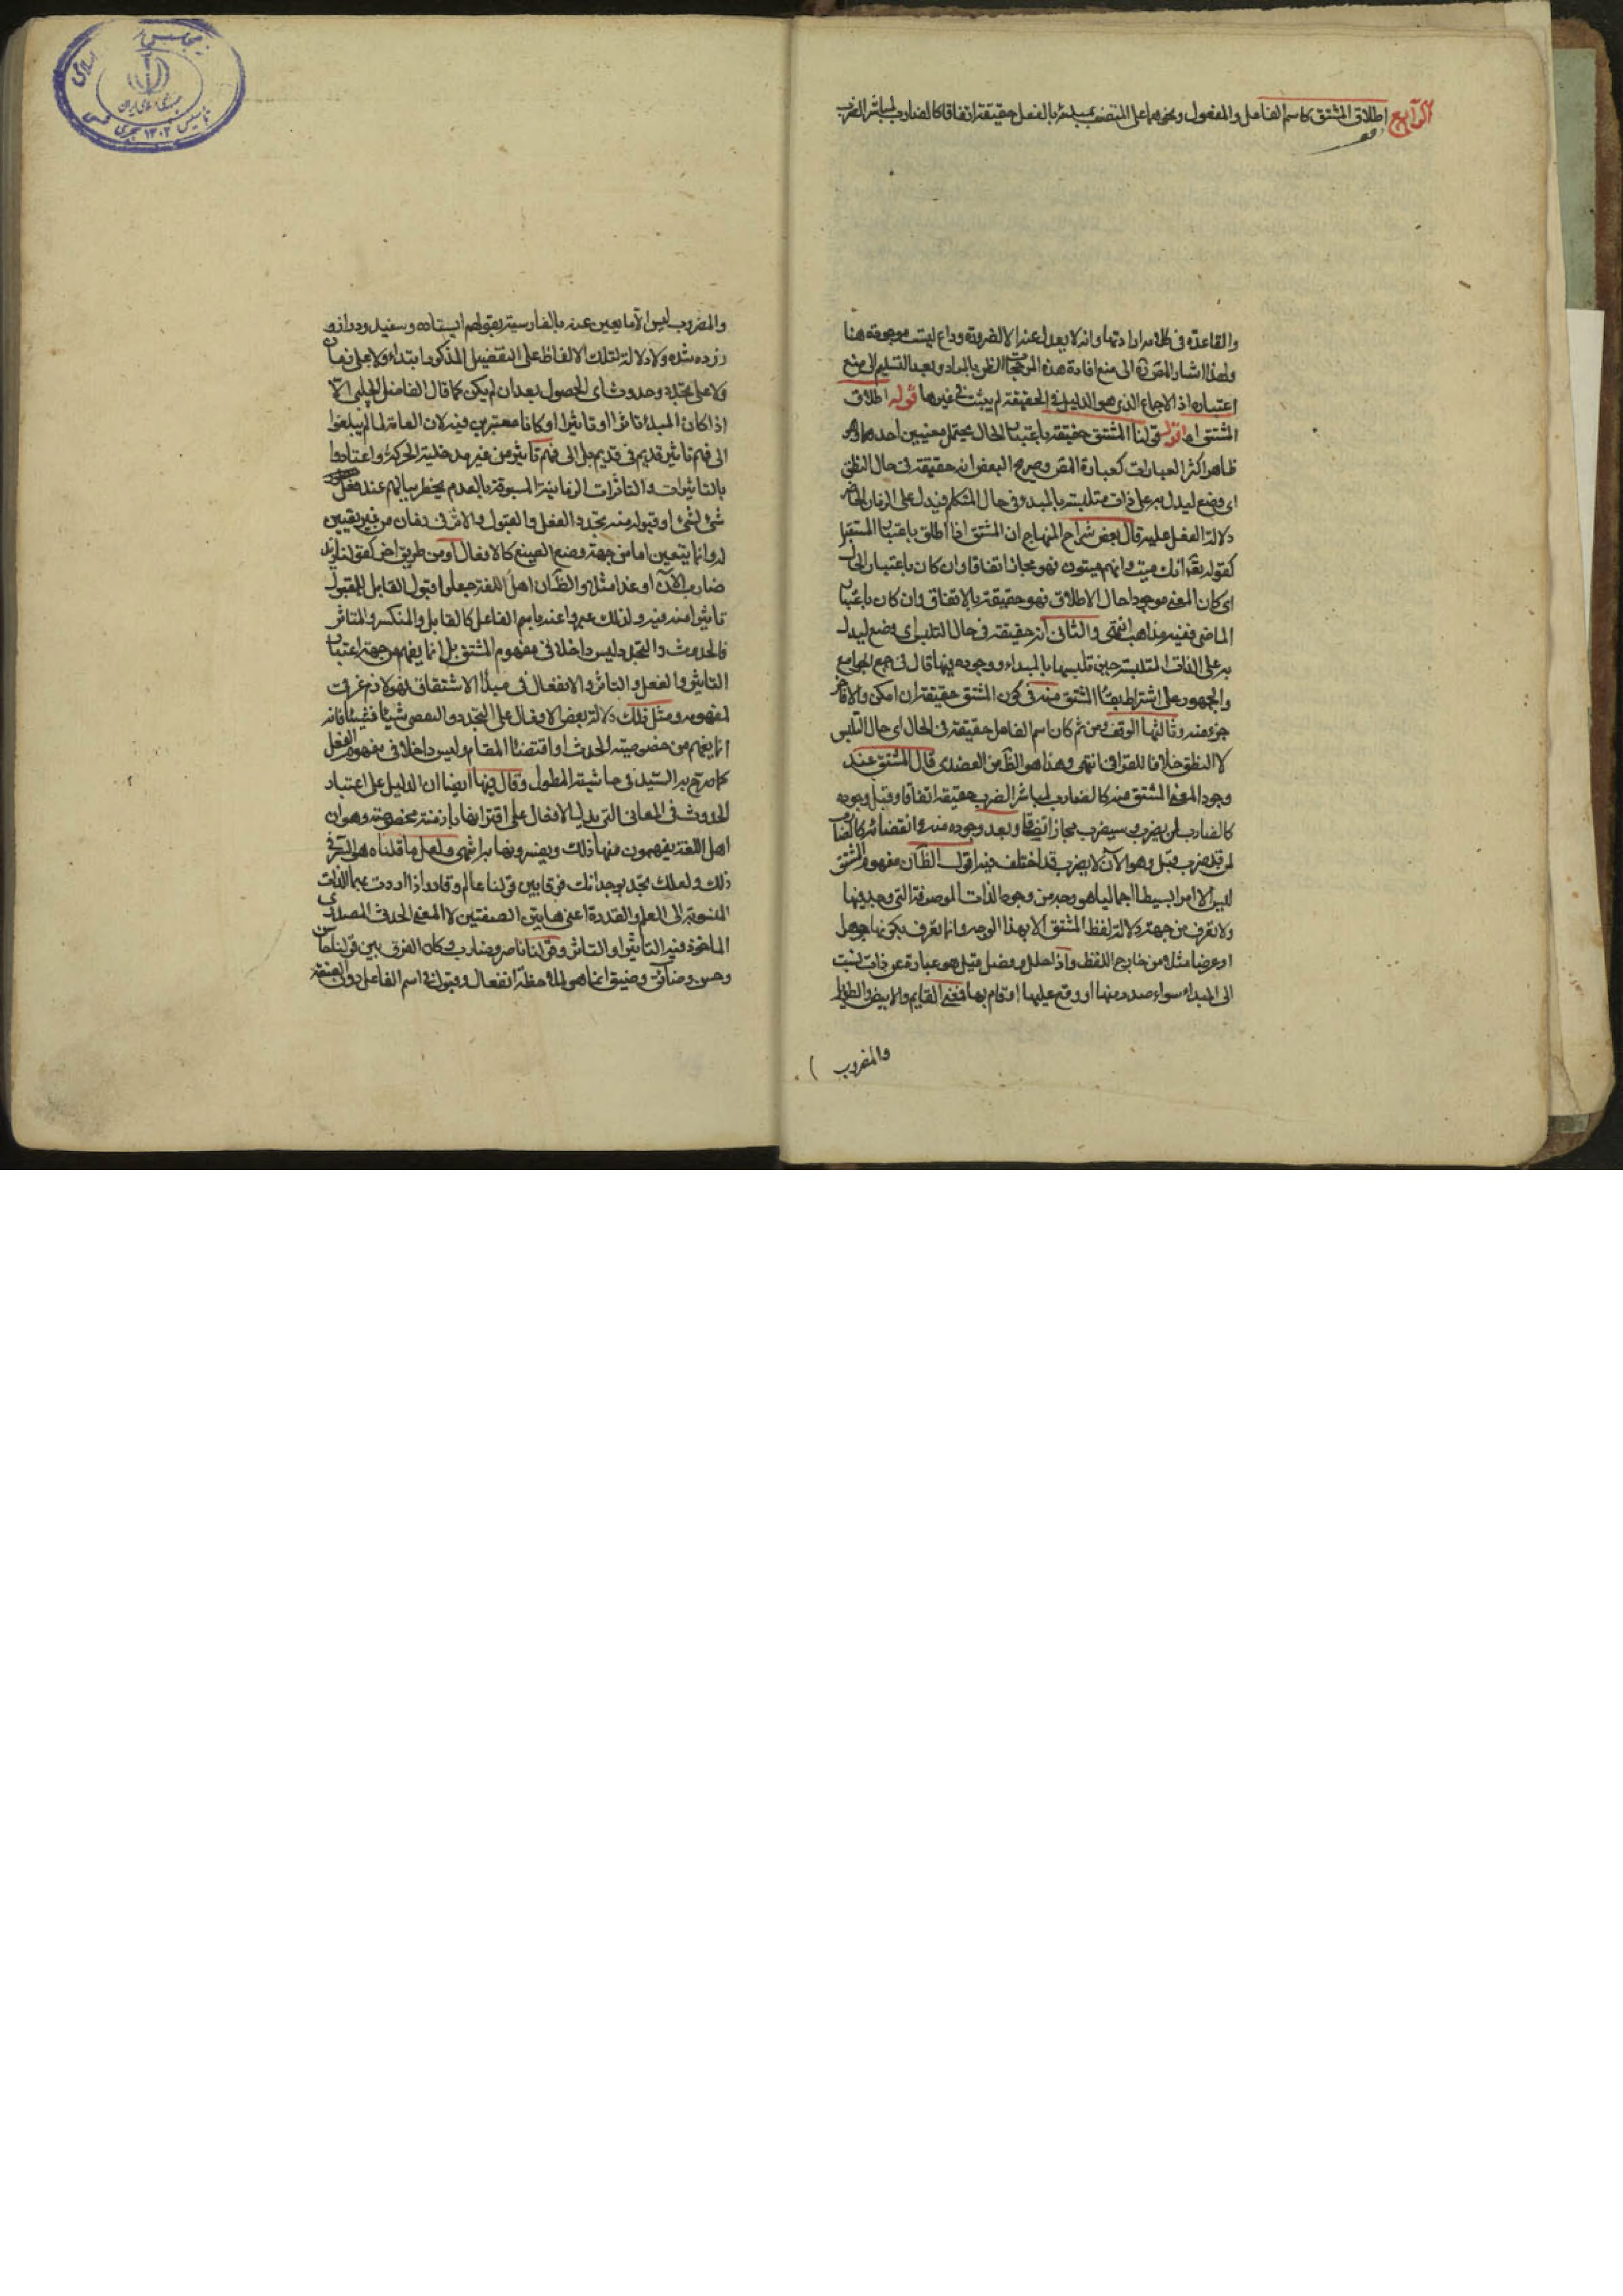 الرابع اطلاق المشتق كاسم الفاعل والمفعول ونحوهما على المتصف بمبدئه بالفعل حقيقة اتفاقا كالضارب لمباشر الضرب
والقاعدة في كلامه ارادتها وانه لا يعدل عنه الا لضرورة وداع ليست موجودة هنا
ولهذا اشار المص ره الى منع افادة هذه المرجحات الظن بالمراد وبعد التسليم الى منع
اعتباره اذ الاجماع الذي هو الدليل في الحقيقة لم يثبت في غيرها قوله اطلاق
المشتق اه اقول قولنا المشتق حقيقة باعتبار الحال يحتمل معنيين احدهما وهو
ظاهر اكثر العبارات كعبارة المص وصريح البعض انه حقيقة في حال النطق
اي وضع ليدل به على ذات متلبسة بالمبدء وفي حال التكلم فيدل على الزمان الحاضر
دلالة الفعل عليه قال بعض شراح المنهاج ان المشتق اذا اطلق باعتبار المستقبل
كقوله تعالى انك ميت وانهم ميتون فهو مجاز اتفاقا وان كان باعتبار الحال
اي كان المعنى موجودا حال الاطلاق فهو حقيقة بالاتفاق وان كان باعتبار
الماضي ففيه مذاهب انتهى والثاني انه حقيقة في حال التلبس اي وضع ليدل
به على الذات المتلبسة حين تلبسها بالمبداء ووجوده فيها قال في جمع الجوامع
والجمهور على اشتراط بقاء المشتق منه في كون المشتق حقيقة ان امكن والا فاخر
جزء منه وثالثها الوقف ومن ثم كان اسم الفاعل حقيقة في الحال اي حال التلبس
لا النطق خلافا للقرافي انتهى وهذا هو الظ من العضدي قال المشتق عند
وجود المعنى المشتق منه كالضارب لمباشر الضرب حقيقة اتفاقا وقبل وجوده
كالضارب لمن يضرب وسيضرب مجاز اتفاقا وبعد وجوده منه وانقضائه كالضارب
لمن قد ضرب قبل وهو الآن لا يضرب قد اختلف فيه اقول الظ ان مفهوم المشتق
ليس الا امرا بسيطا اجماليا هو وجه من وجوه الذات الموصوفة التي وجد فيها
ولا تعرف من جهة دلالة لفظ المشتق الا بهذا الوجه وانما تعرف بكونها جوهرا
او عرضا مثلا من خارج اللفظ واذا حلل وفصل قيل هو عبارة عن ذات نسبت
الى المبداء سواء صدر منها او وقع عليها او قام بها فمعنى القايم والابيض والطويل
والمضروب
والمضروب ليس الا ما يعبر عنه بالفارسية بقولهم ايستاده وسفيد ودراز و
زده شده ولا دلالة لتلك الالفاظ على التفضيل المذكور ابتداء ولا على زمان
ولا على تجدد وحدوث اي الحصول بعد ان لم يكن كما قال الفاضل الچلبي الا
اذا كان المبدء تاثرا او تاثيرا او كانا معتبرين فيه لان العامة لما لم يبلغوا
الى فهم تاثير قديم في قديم بل الى فهم تاثير من غير مدخلية الحركة واعتادوا
بالتاثيرات والتاثرات الزمانية المسبوقة بالعدم يخطر ببالهم عند فعل
شئ لشئ او قبوله منه تجدد الفعل والقبول والاثر في زمان من غير تعيين
له وانما يتعين اما من جهة وضع الصيغ كالافعال او من طريق اخر كقولنا زيد
ضارب الآن او غدا مثلا والظ ان اهل اللغة جعلوا قبول القابل للمقبول
تاثيرا منه فيه ولذلك عبروا عنه باسم الفاعل كالقابل والمنكسر والمتاثر
فالحدوث والتجدد ليس داخلا في مفهوم المشتق بل انما يفهم من جهة اعتبار
التاثير والفعل والتاثر والانفعال في مبدأ الاشتقاق فهو لازم عرفي
لمفهومه ومثل ذلك دلالة بعض الافعال على التجدد والتقضي شيئا فشيئا فانه
انما يفهم من خصوصية الحدث او اقتضاء المقام وليس داخلا في مفهوم الفعل
كما صرح به السيد في حاشية المطول وقال فيها ايضا ان الدليل على اعتبار
الحدوث في المعاني التي يدل بالافعال على اقترانها بازمنة مخصوصة وهو ان
اهل اللغة يفهمون منها ذلك ويفسرونها به انتهى ولعل ما قلناه هو السر في
ذلك ولعلك تجد بوجدانك فرقا بين قولنا عالم وقادر اذا اردت بهما الذات
المنسوبة الى العلم والقدرة اعني هاتين الصفتين لا المعنى الحدثي المصدري
الماخوذ فيه التاثير او التاثر وقولنا ناصر وضارب وكان الفرق بين قولنا حاسن
وحسن وضائق وضيق انما هو لملاحظة انفعال وقبول في اسم الفاعل دون الصفة